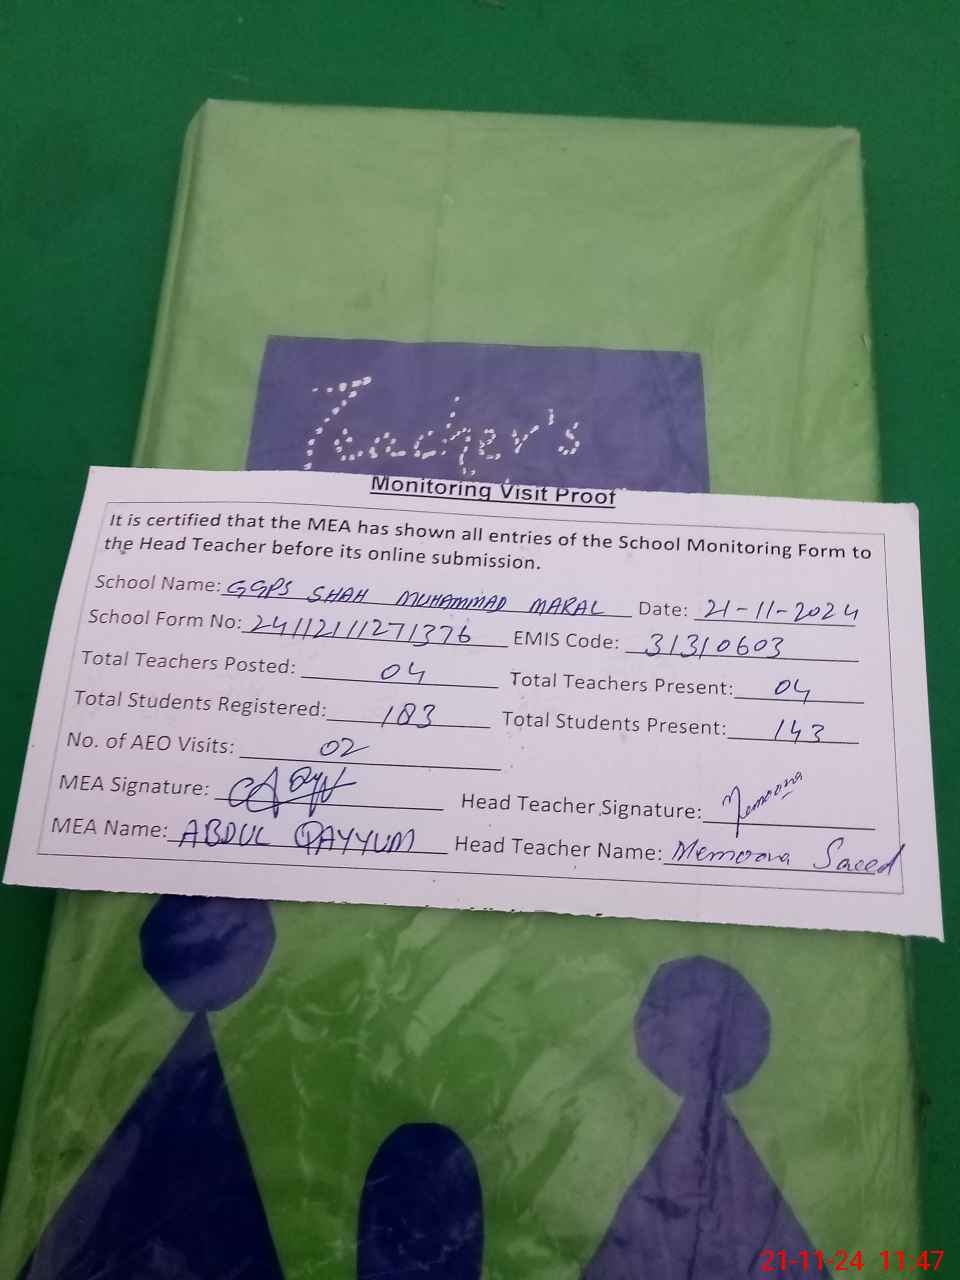 Teacher's
Monitoring Visit Proof
It is certified that the MEA has shown all entries of the School Monitoring Form to
the Head Teacher before its online submission.
School Name: GGPS SHAH MUHAMMAD MARAL Date: 21-11-2024
School Form No: 24112111271376 EMIS Code: 31310603
Total Teachers Posted: 04 Total Teachers Present: 04
Total Students Registered: 183 Total Students Present: 143
No. of AEO Visits: 02
MEA Signature: Head Teacher Signature: Memoona
MEA Name: ABDUL QAYYUM Head Teacher Name: Memoona Saeed
21-11-24 11:47